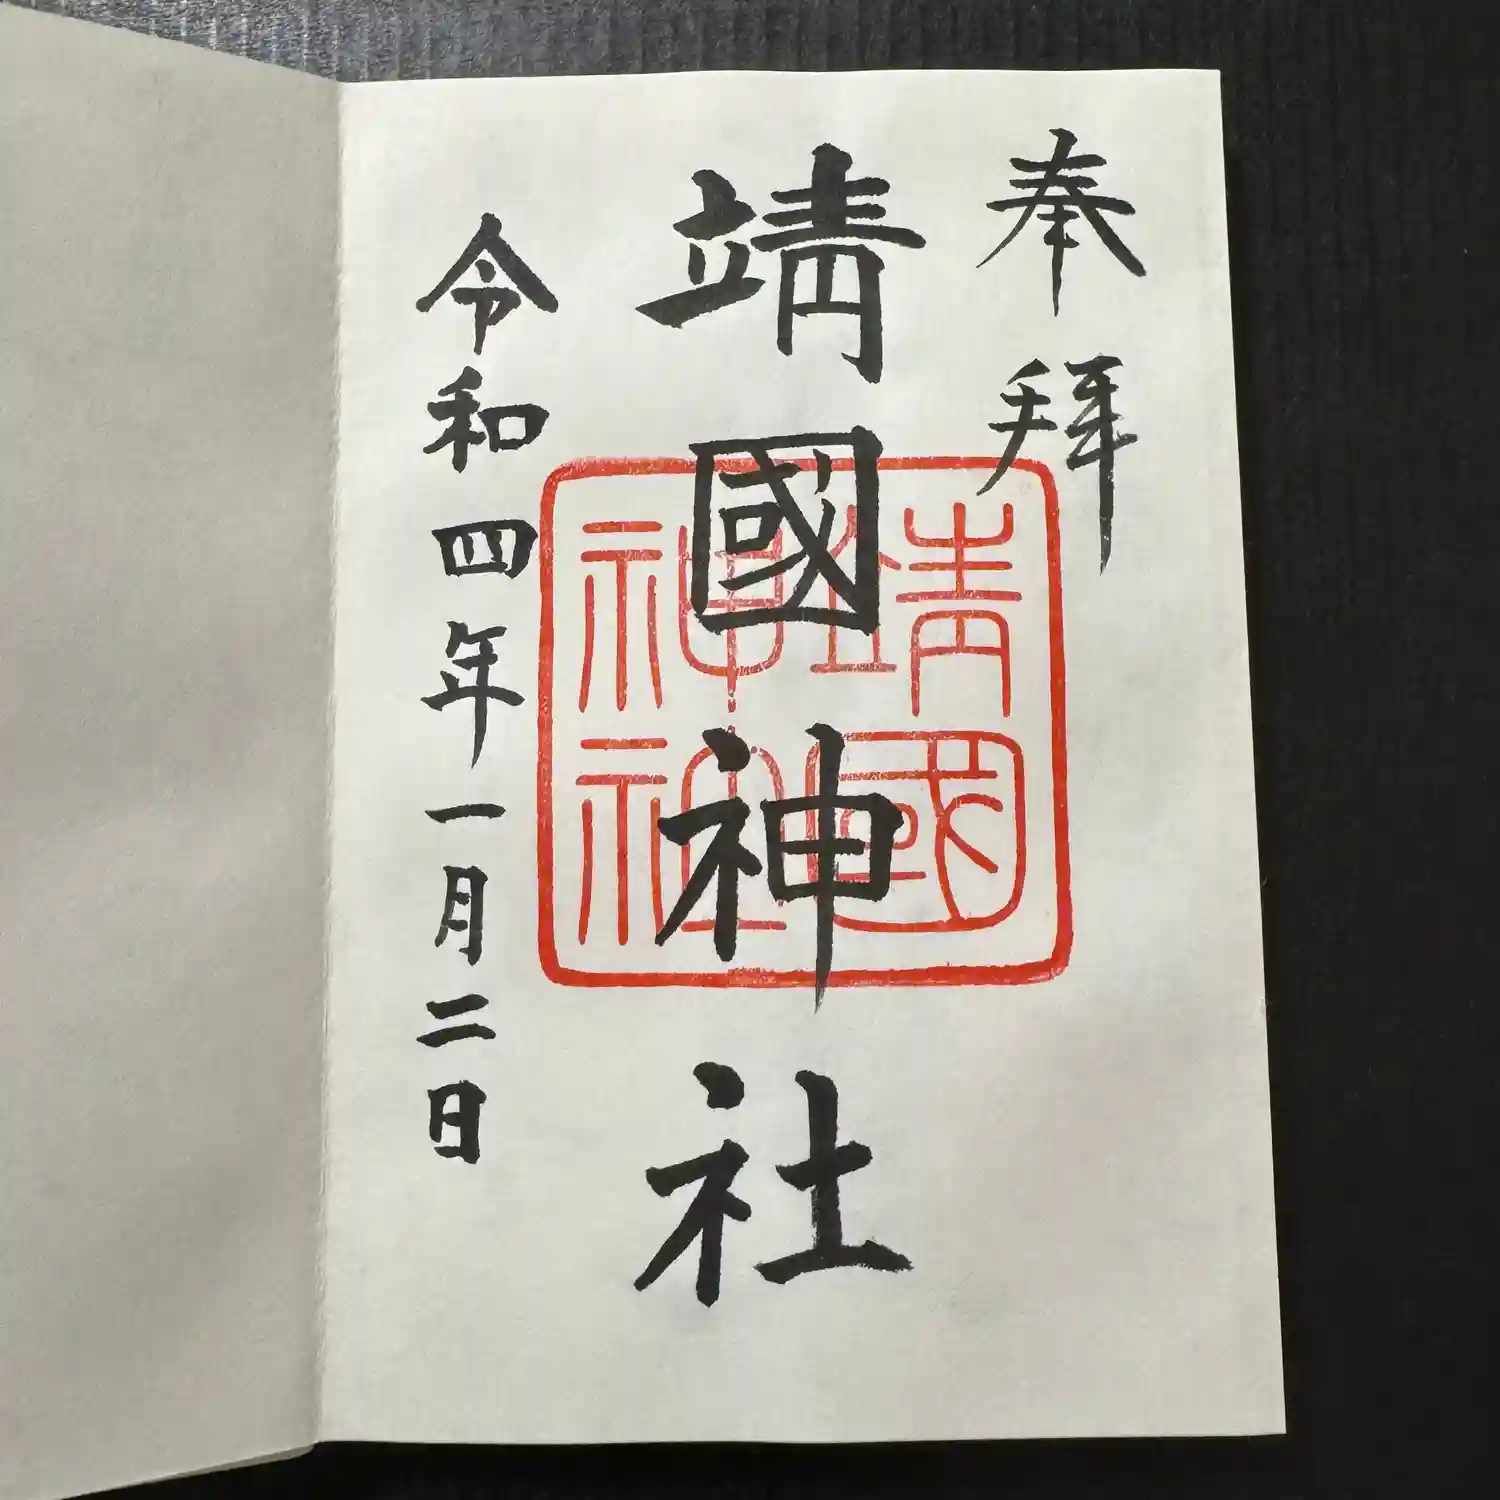 奉拝
靖國神社
靖國
神社
令和四年一月二日